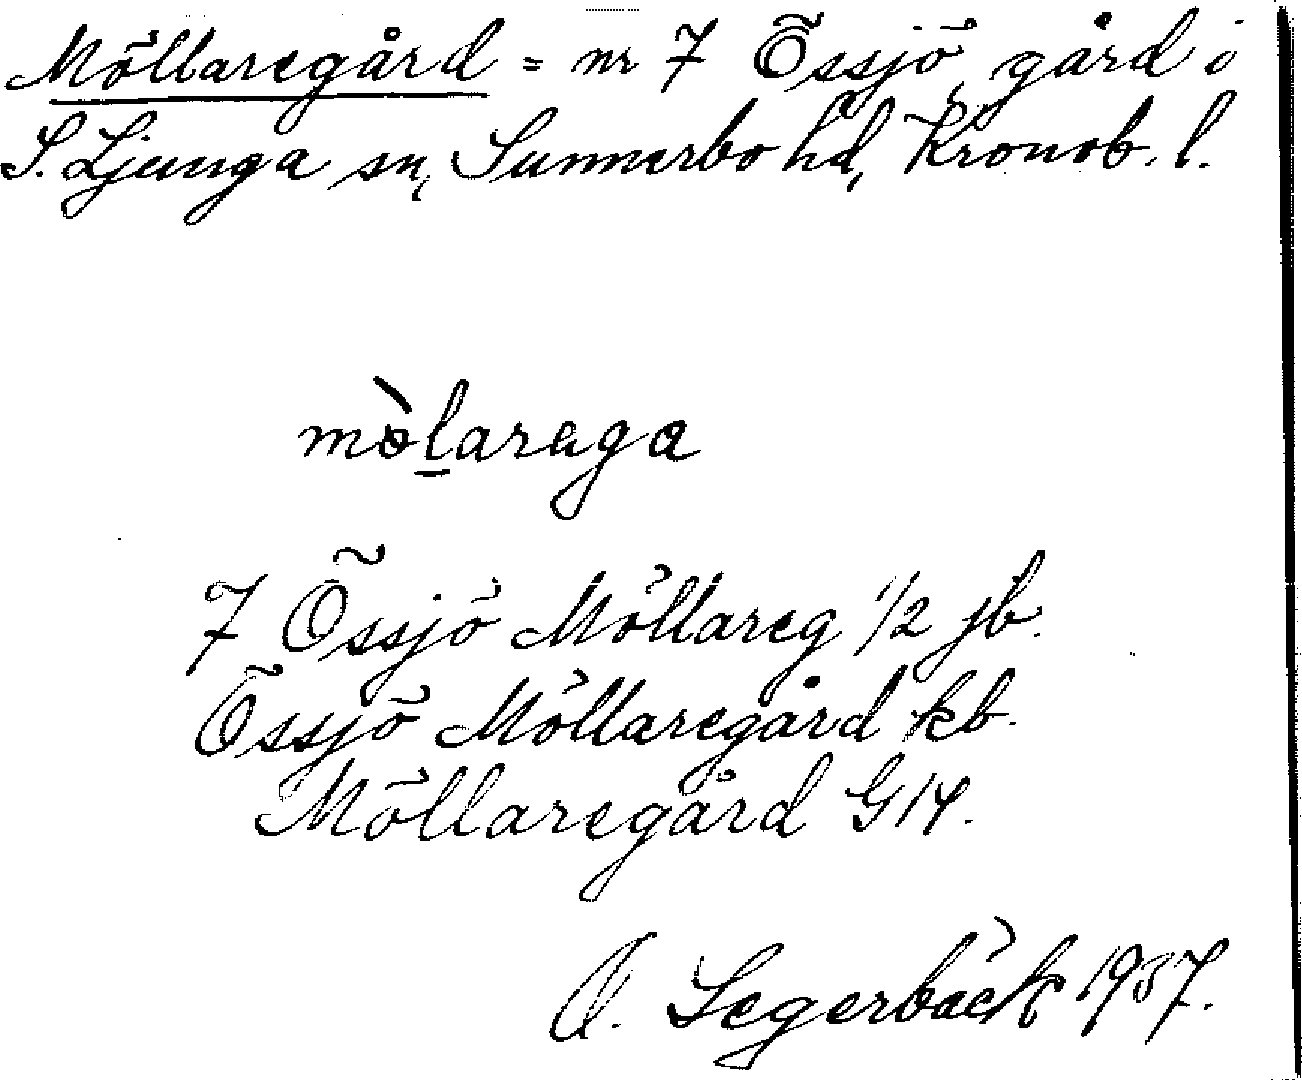 Möllaregård = nr 7 Össjö, gård i
S. Ljunga sn, Sunnerbo hd, Kronob. l.
mòlaraga
7 Össjö Möllareg 1/2 jb.
Össjö Möllaregård kb.
Möllaregård G14.
Segerbäck 1937.